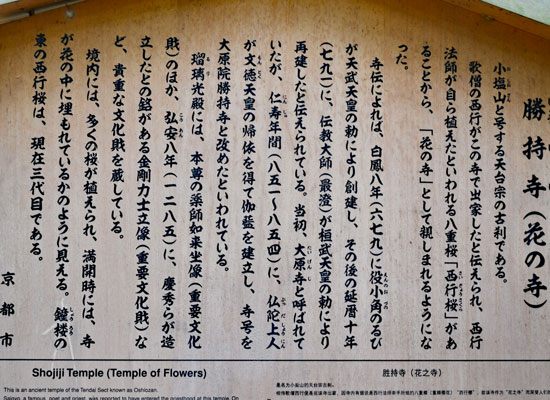 勝持寺(花の寺)
小塩山と号する天台宗の古刹である。
歌僧の西行がこの寺で出家したと伝えられ、西行
法師が自ら植えたといわれる八重桜「西行桜」があ
ることから、「花の寺」として親しまれるようにな
った。
寺伝によれば、白鳳八年(六七九)に役小角のるび
が天武天皇の勅により創建し、その後の延暦十年
(七九一)に、伝教大師(最澄)が桓武天皇の勅により
再建したと伝えられている。当初、大原寺と呼ばれて
いたが、仁寿年間(八五一～八五四)に、仏陀上人
が文徳天皇の帰依を得て伽藍を建立し、寺号を
大原院勝持寺と改めたといわれている。
瑠璃光殿には、本尊の薬師如来坐像(重要文化
財)のほか、弘安八年(一二八五)に、慶秀らが造
立したとの銘がある金剛力士立像(重要文化財)な
ど、貴重な文化財を蔵している。
境内には、多くの桜が植えられ、満開時には、寺
が花の中に埋もれているかのように見える。鐘楼の
東の西行桜は、現在三代目である。
京都市
Shojiji Temple (Temple of Flowers)
This is an ancient temple of the Tendai Sect known as Oshiozan.
Saigyo, a famous poet and priest, was reported to have entered the priesthood at this temple. On
胜持寺(花之寺)